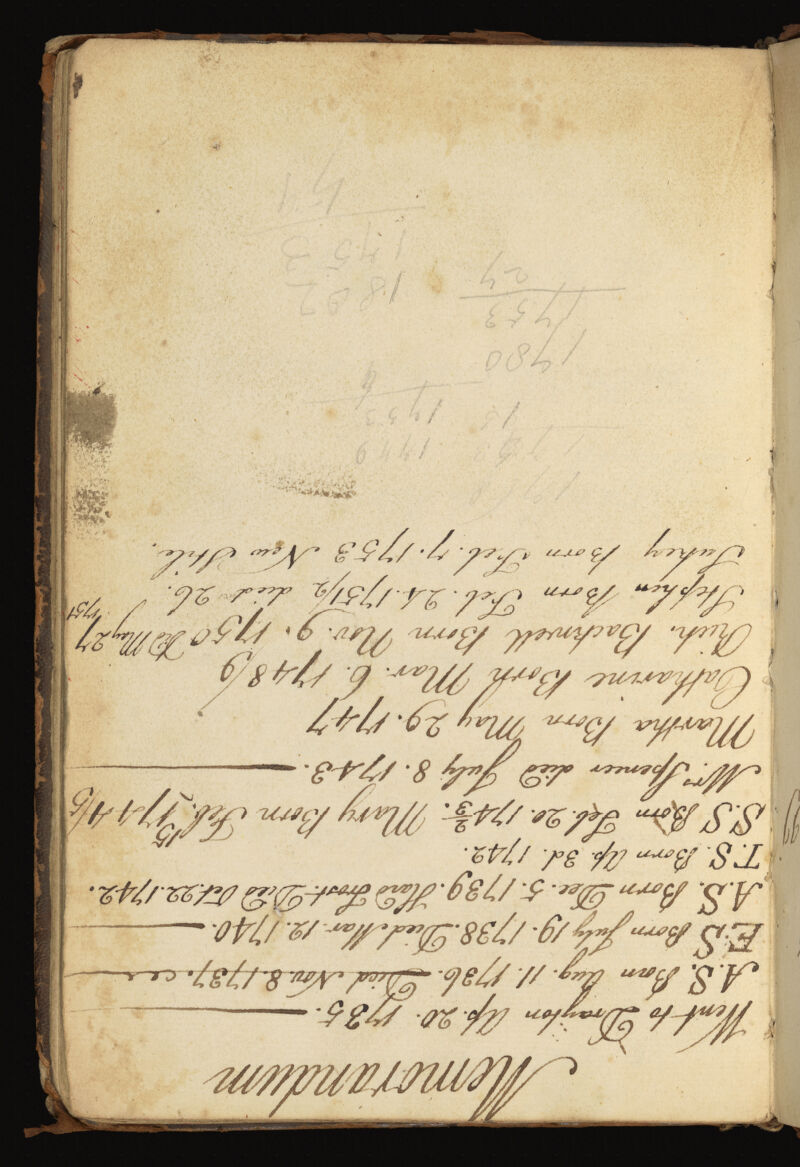 Memorandum
Went to Drayton Ap. 20. 1735.
A.S. Born Aug. 11. 1736. Died Nov. 8. 1737.
E.S Born July 19. 1738. Died Mar. 12. 1740.
A.S. Born Dec. 5. 1739. Hard Frost. Died Oct. 22. 1742.
T.S. Born Ap. 3d. 1742.
S.S Born Feb. 20. 174 2/3. Mary Born Feb. 15 1744/5
Mrs. Spencer died July 8. 1743.
Martha Born May 29. 1747
Catharine Born Mar. 6. 1748/9
Bathwell Born Nov. 9. 1750 Died May 27 1751
Stephen Born Feb. 21. 1751/2 died 26.
Born Feb. 7. 1753 New Stile.
1749
1753
4
15
1780
1753
27
1802
1753